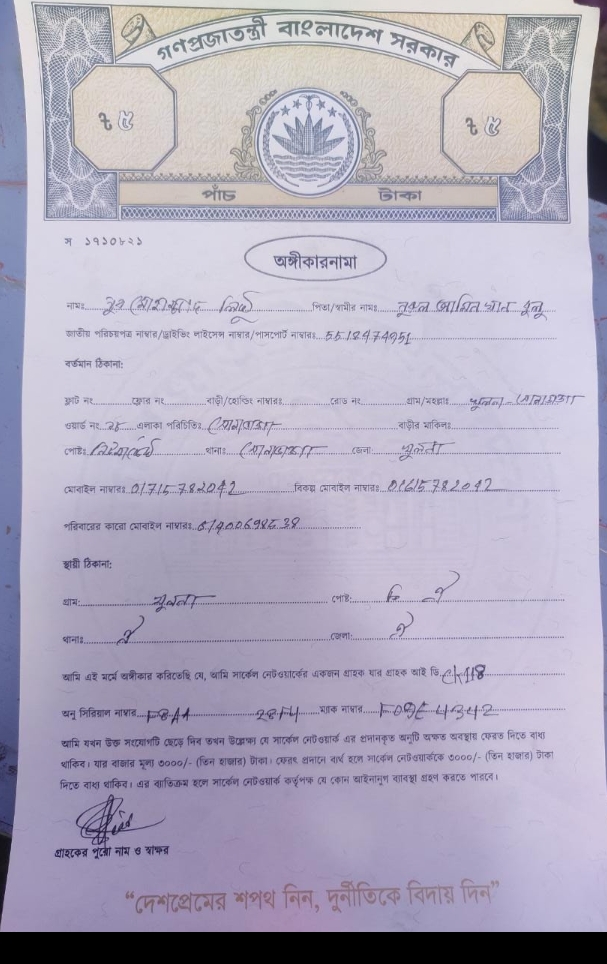 গণপ্রজাতন্ত্রী বাংলাদেশ সরকার
৳ ৫ ৳ ৫
পাঁচ টাকা
স ১৭১০৮২১
অঙ্গীকারনামা
নামঃ নুর মোহাম্মাদ পিতা/স্বামীর নামঃ নুরুল আমিন খান
জাতীয় পরিচয়পত্র নাম্বার/ড্রাইভিং লাইসেন্স নাম্বার/পাসপোর্ট নাম্বারঃ 5518474951
বর্তমান ঠিকানা:
ফ্লাট নং ফ্লোর নং বাড়ী/হোল্ডিং নাম্বারঃ রোড নং গ্রাম/মহল্লাঃ খুলনা - সোনাডাঙ্গা
ওয়ার্ড নং এলাকা পরিচিতিঃ সোনাডাঙ্গা বাড়ীর মালিকঃ
পোষ্টঃ থানাঃ সোনাডাঙ্গা জেলা খুলনা
মোবাইল নাম্বারঃ 01715782042 বিকল্প মোবাইল নাম্বারঃ 01615782042
পরিবারের কারো মোবাইল নাম্বারঃ
স্থায়ী ঠিকানা:
গ্রাম: খুলনা পোষ্ট: ঐ
থানাঃ ঐ জেলা: ঐ
আমি এই মর্মে অঙ্গীকার করিতেছি যে, আমি সার্কেল নেটওয়ার্কের একজন গ্রাহক যার গ্রাহক আই ডি ck118
অনু সিরিয়াল নাম্বার F8A1 28F4 ম্যাক নাম্বার F09E 4342
আমি যখন উক্ত সংযোগটি ছেড়ে দিব তখন উল্লেখ্য যে সার্কেল নেটওয়ার্ক এর প্রদানকৃত অনুটি অক্ষত অবস্থায় ফেরত দিতে বাধ্য
থাকিব। যার বাজার মূল্য ৩০০০/- (তিন হাজার) টাকা। ফেরৎ প্রদানে ব্যর্থ হলে সার্কেল নেটওয়ার্ককে ৩০০০/- (তিন হাজার) টাকা
দিতে বাধ্য থাকিব। এর ব্যতিক্রম হলে সার্কেল নেটওয়ার্ক কর্তৃপক্ষ যে কোন আইনানুগ ব্যবস্থা গ্রহণ করতে পারবে।
গ্রাহকের পুরো নাম ও স্বাক্ষর
“দেশপ্রেমের শপথ নিন, দুর্নীতিকে বিদায় দিন”